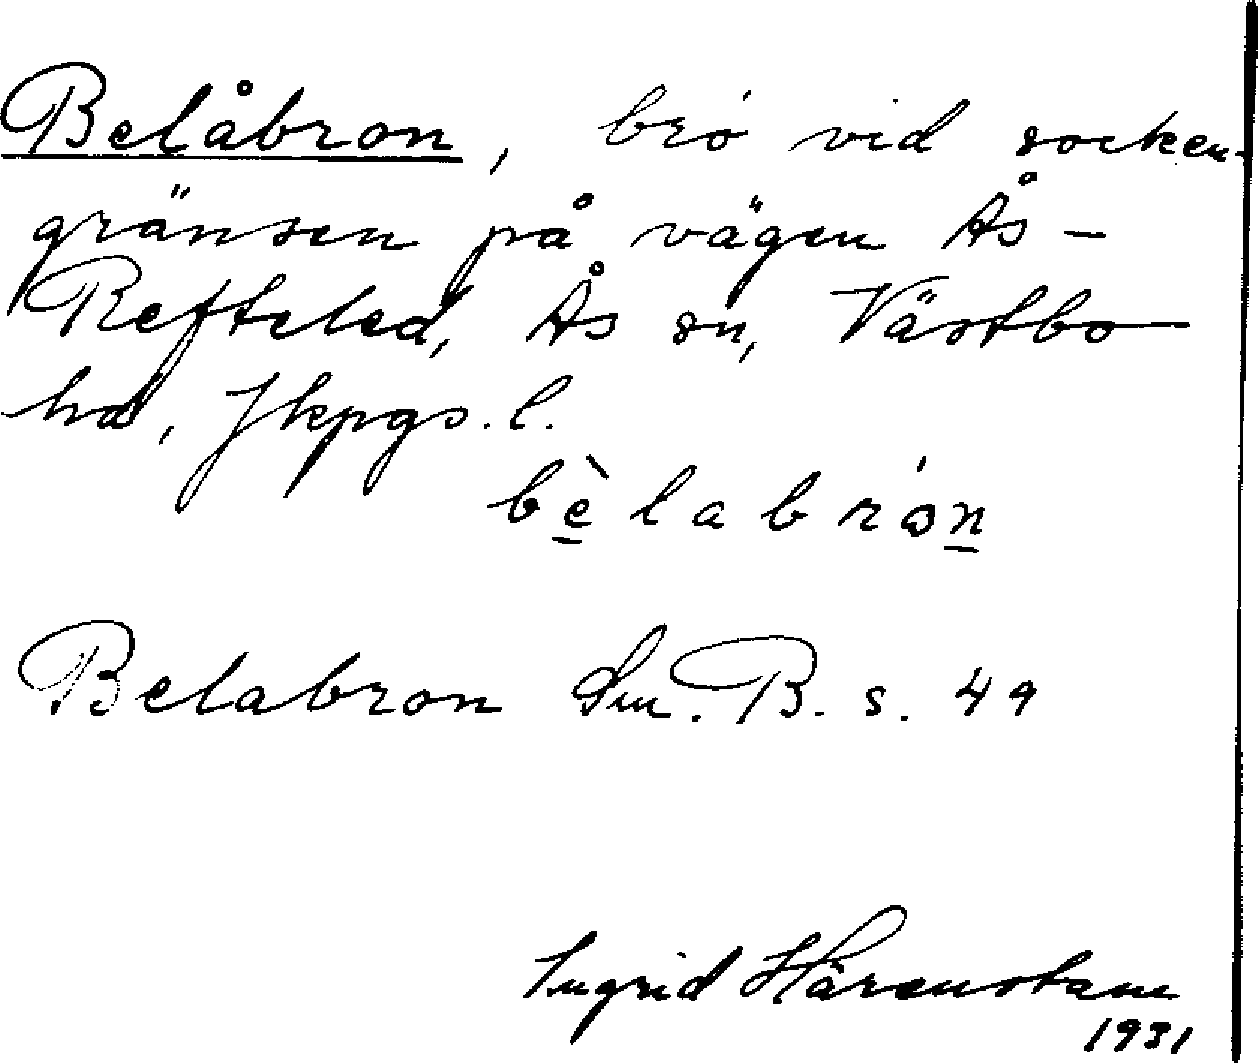 Belåbron, bro vid socken-
gränsen på vägen Ås –
Reftele d, Ås sn, Västbo
hd, Jkpgs. l.
bèlabrón
Belabron Sm. B. s. 49
Ingrid Härenstam
1931